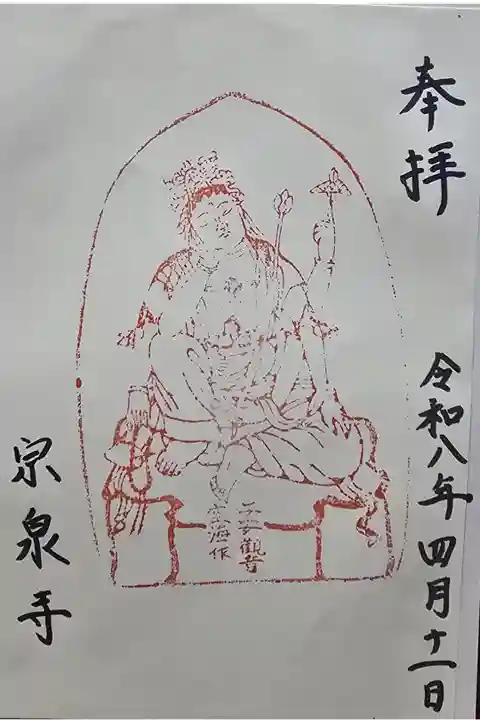 奉拝
令和八年四月十一日
宗泉寺
観音
海作